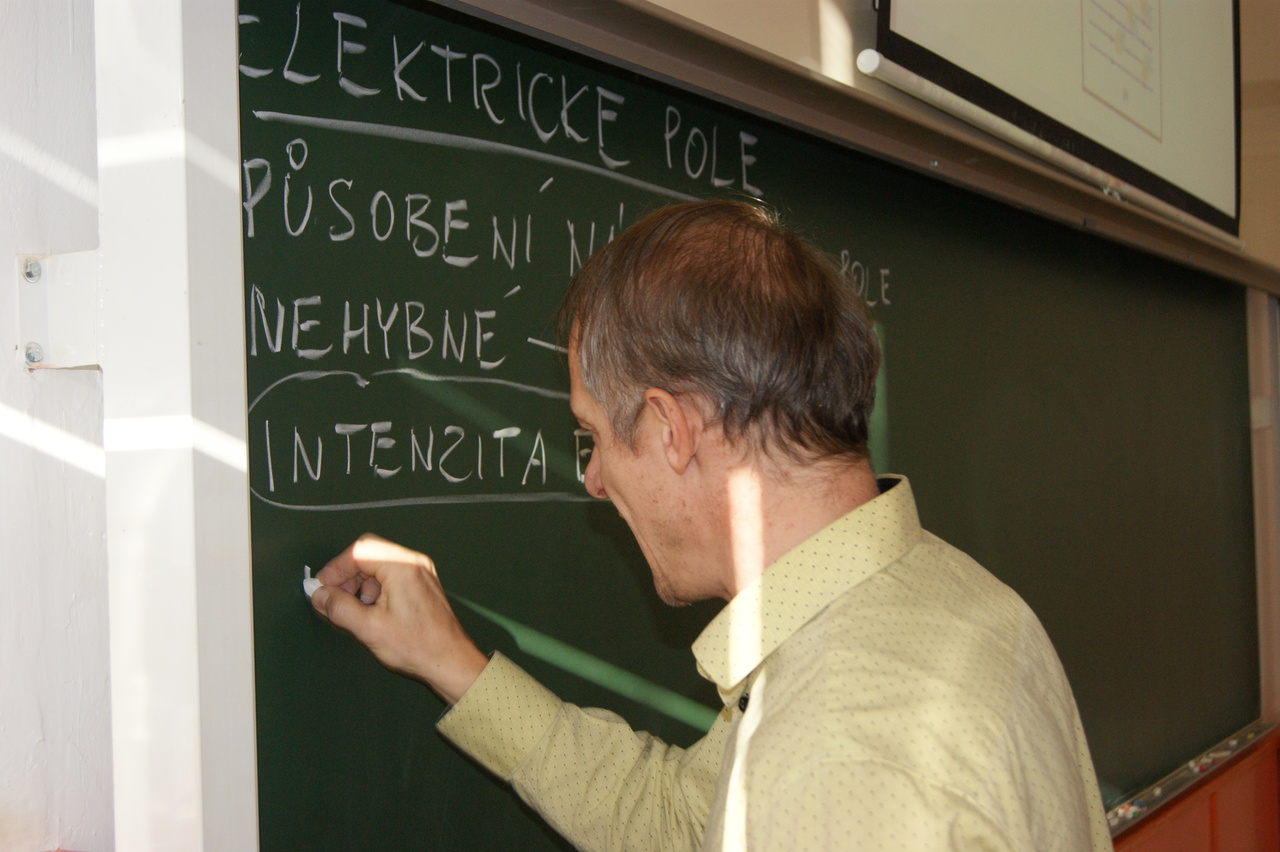 ELEKTRICKÉ POLE
PŮSOBENÍ POLE
NEHYBNÉ –
INTENZITA E